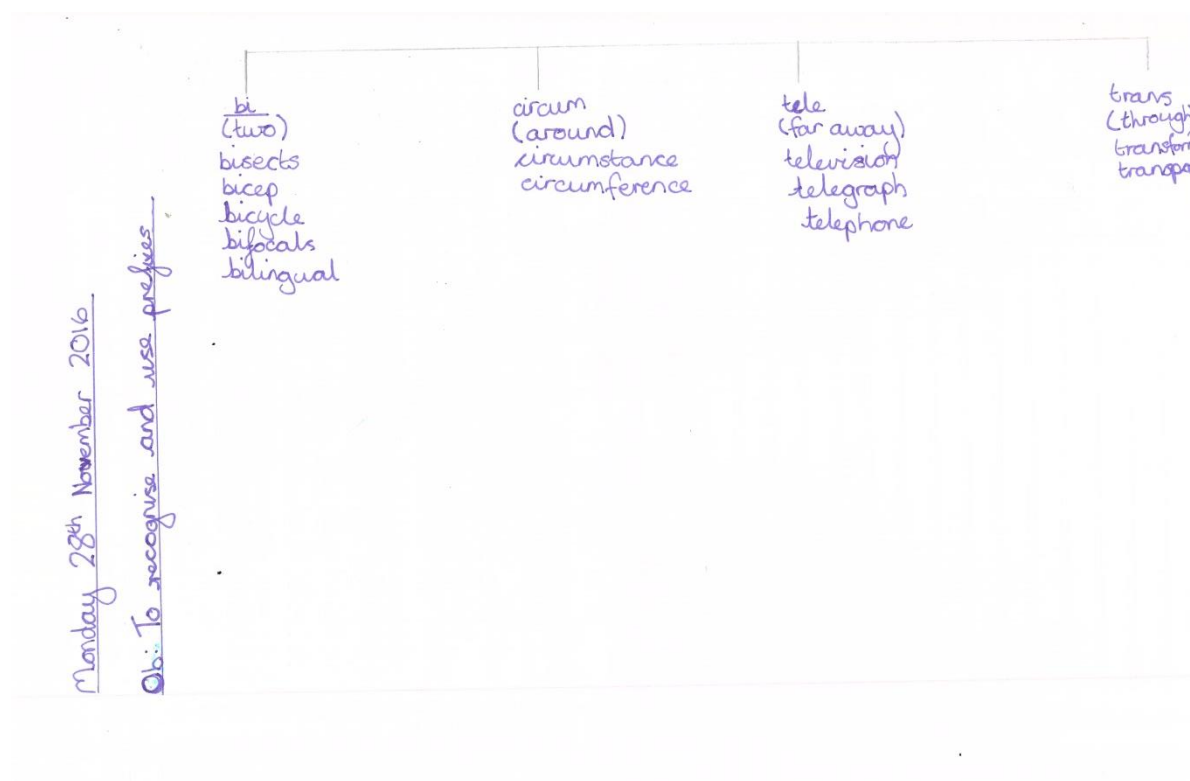 Monday 28th November 2016
Ob: To recognise and use prefixes
bi
(two)
bisects
bicep
bicycle
bifocals
bilingual
circum
(around)
circumstance
circumference
tele
(far away)
television
telegraph
telephone
trans
(through